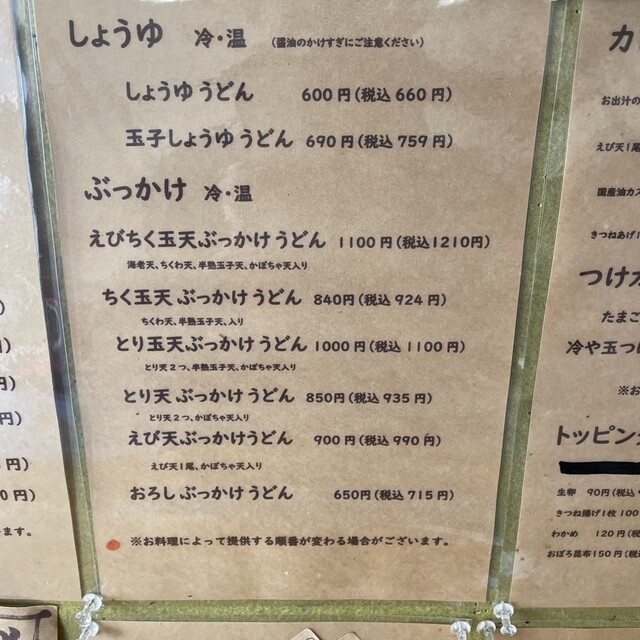 しょうゆ 冷・温 (醤油のかけすぎにご注意ください)
しょうゆうどん 600円(税込660円)
玉子しょうゆうどん 690円(税込759円)
ぶっかけ 冷・温
えびちく玉天ぶっかけうどん 1100円(税込1210円)
海老天、ちくわ天、半熟玉子天、かぼちゃ天入り
ちく玉天ぶっかけうどん 840円(税込924円)
ちくわ天、半熟玉子天、入り
とり玉天ぶっかけうどん 1000円(税込1100円)
とり天2つ、半熟玉子天、かぼちゃ天入り
とり天ぶっかけうどん 850円(税込935円)
とり天2つ、かぼちゃ天入り
えび天ぶっかけうどん 900円(税込990円)
えび天1尾、かぼちゃ天入り
おろしぶっかけうどん 650円(税込715円)
※お料理によって提供する順番が変わる場合がございます。
カ
お出汁の
えび天1尾
国産油カス
きつねあげ1
つけカ
たまご
冷や玉つけ
※お
トッピング
生卵 90円(税込
きつね揚げ1枚100
わかめ 120円(税
おぼろ昆布150円(税
円)
円)
円)
0円)
ます。